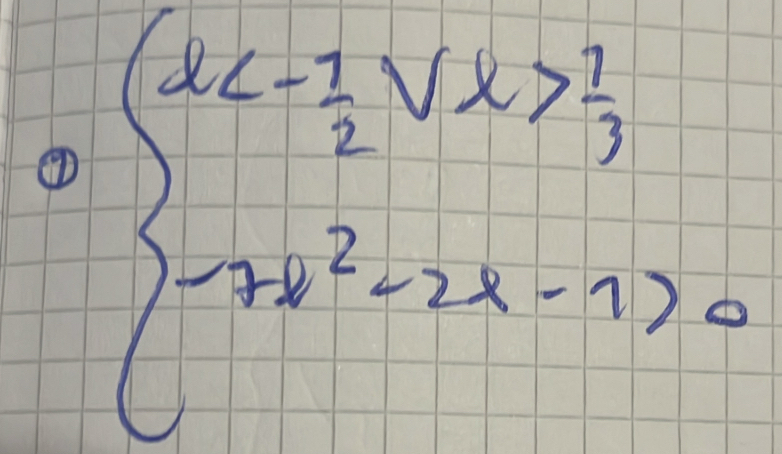 ① { x < -1/2 ∨ x > 1/3
-7x² - 2x - 1 > 0